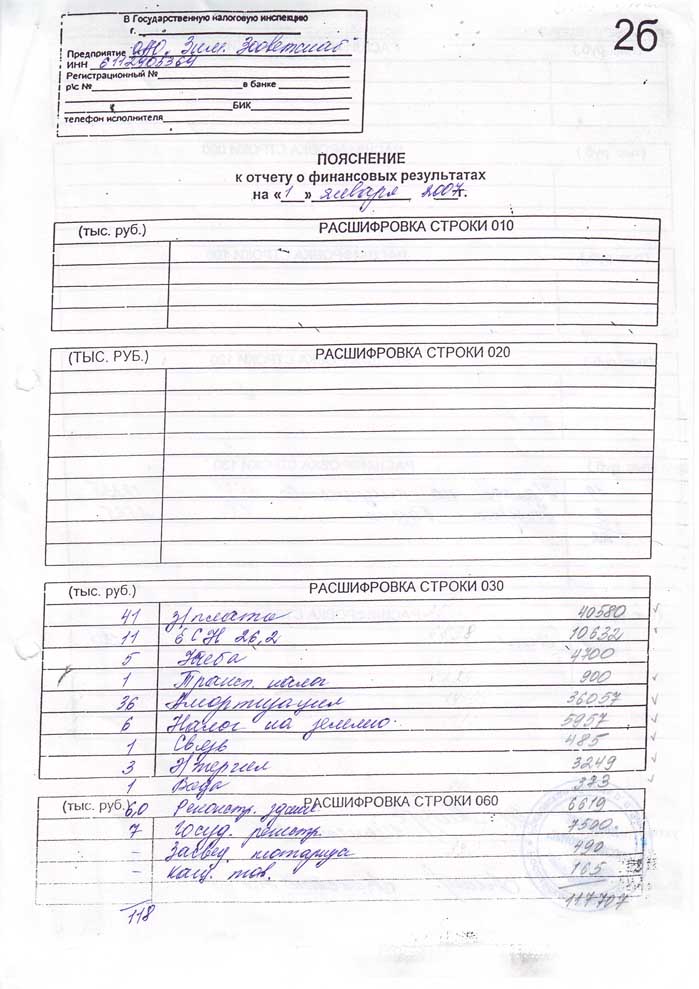 В Государственную налоговую инспекцию
г.
2б
Предприятие ОАО "Зим.
ИНН 6112905364
Регистрационный №
р\с № в банке
БИК
телефон исполнителя
ПОЯСНЕНИЕ
к отчету о финансовых результатах
на «1» января 2007г.
(тыс. руб.) РАСШИФРОВКА СТРОКИ 010
(ТЫС. РУБ.) РАСШИФРОВКА СТРОКИ 020
(тыс. руб.) РАСШИФРОВКА СТРОКИ 030
41 з/плата 40580
11 ЕСН 26,2 10632
5 4700
1 Трансп. налог 900
36 Амортизация 36057
6 Налог на землю 5957
1 Связь 485
3 Э/энергия 3249
1 Вода 373
(тыс. руб.) РАСШИФРОВКА СТРОКИ 060
6,0 Реконстр. здания 6619
7 Госуд. регистр. 7590
- Засвед. нотариуса 490
- канц. тов. 165
118 117707